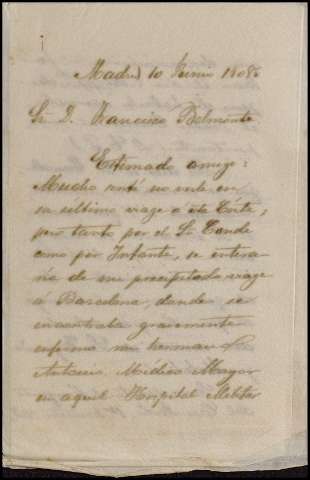 Madrid 10 Junio 1808
Sr. D. Francisco Belmonte
Estimado amigo:
Mucho sentí no verle en
su último viage a esta Corte,
pero tanto por el Sr. Conde
como por Infante, se entera-
ría de mi precipitado viage
á Barcelona, donde se
encontraba gravemente
enfermo mi hermano
Antonio, Médico Mayor
en aquel Hospital Militar